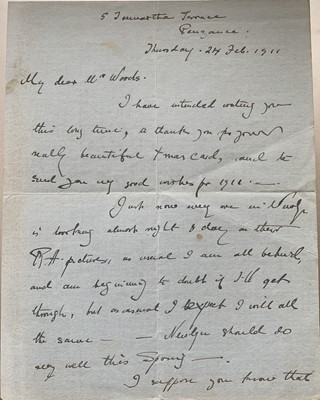 5 Trewartha Terrace
Penzance.
Thursday. 24 Feb. 1911
My dear Mr Woods.
I have intended writing you
this long time, & thank you for your
really beautiful Xmas card, and to
send you my good wishes for 1911. —
Just now every one in Newlyn
is working almost night & day on their
R.A. pictures, as usual I am all behind,
and am beginning to doubt if I'll get
through, but as usual I expect I will all
the same — — Newlyn should do
very well this Spring —.
I suppose you know that